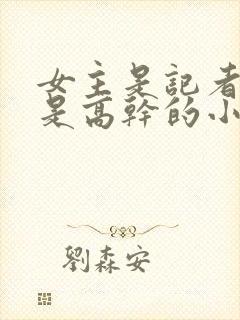 女主是記者
是高幹的小
劉森安